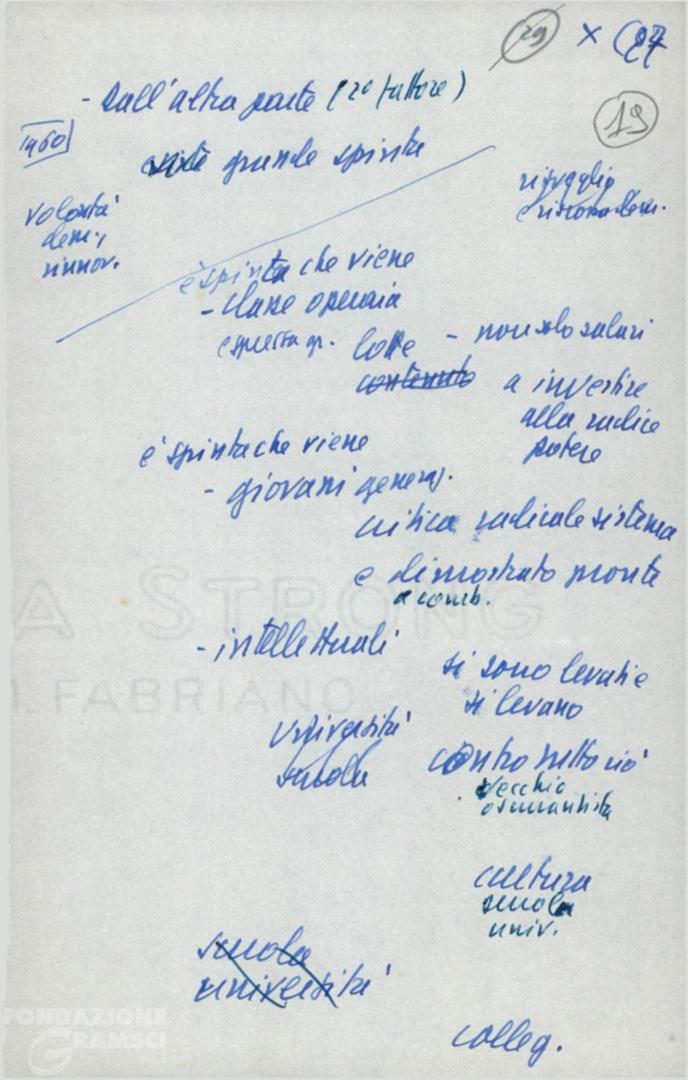 29 x 27
19
- Dall'altra parte (2° fattore)
1960
grande spinta
risveglio
e riscossa dem.
volontà
dem.,
rinnov.
è spinta che viene
- classe operaia
questa gr. lotte - non solo salari
contenuto a investire
alla radice
potere
è spinta che viene
- giovani generaz.
critica radicale sistema
e dimostrato pronta
a comb.
- intellettuali
si sono levati e
si levano
Università
scuola
contro tutto ciò
vecchio
oscurantista
cultura
scuola
univ.
scuola
università
colleg.
A STRONG
FABRIANO
FONDAZIONE
GRAMSCI